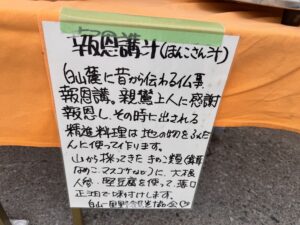 報恩講汁(ほんこさん汁)
白山麓に昔から伝わる仏事
報恩講。親鸞上人に感謝
報恩し、その時に出される
精進料理は地元の物をふんだ
んに使って作ります。
山から採ってきたきのこ類(
なめこ、マスタケなど)に、大根
人参、堅豆腐を使って、薄口
正油で味付けします。
白山